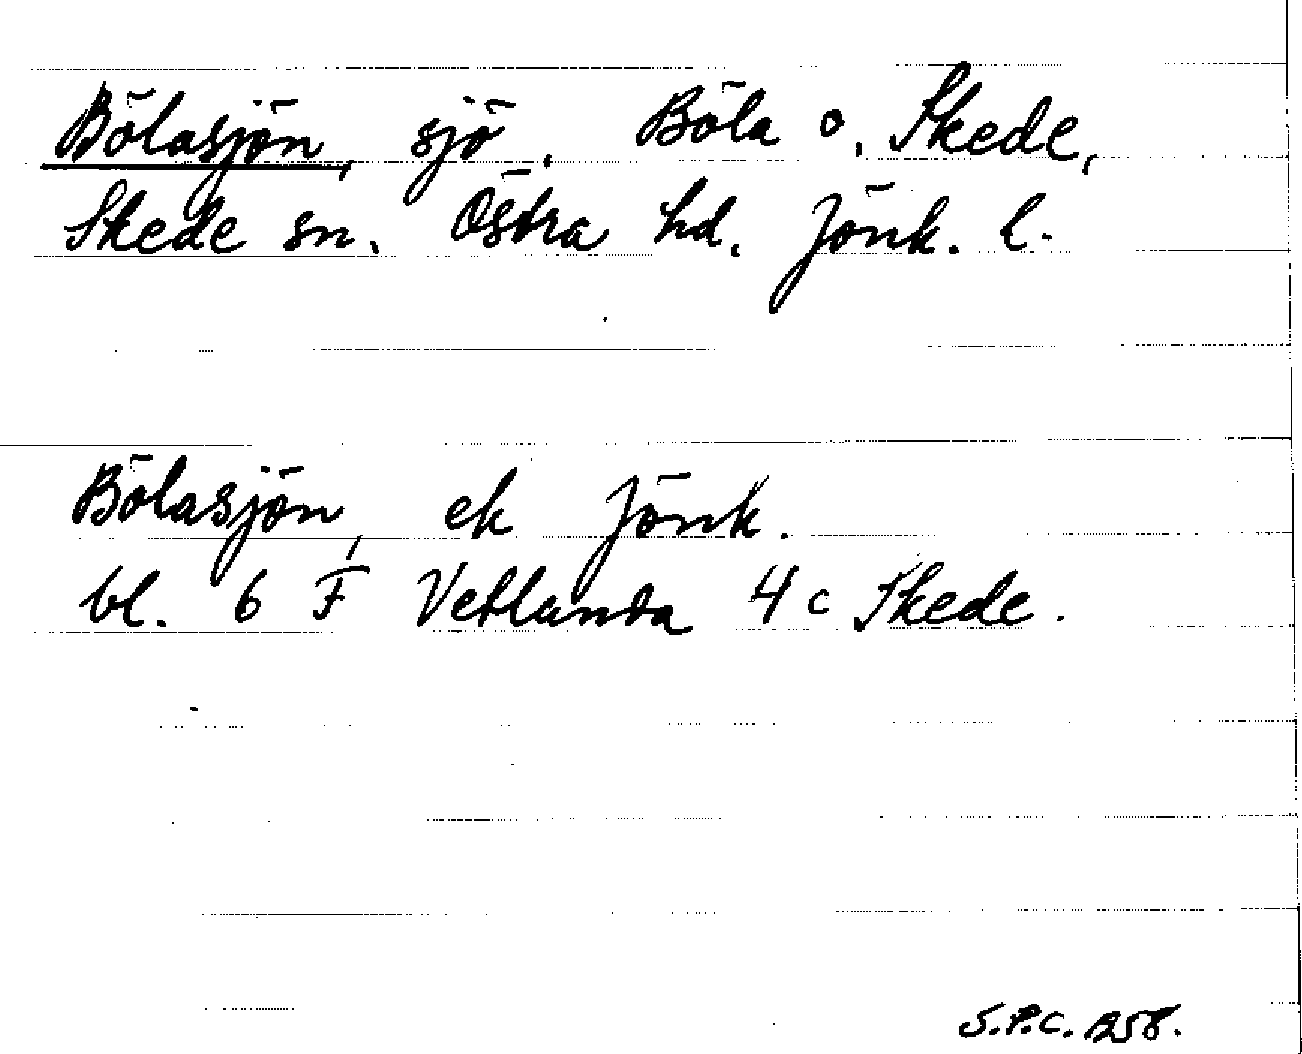 Bölasjön, sjö. Böla o. Skede,
Skede sn. Östra hd. Jönk. l.
Bölasjön, ek Jönk.
bl. 6 F Vetlanda 4 c Skede.
S.P.C. 1258.